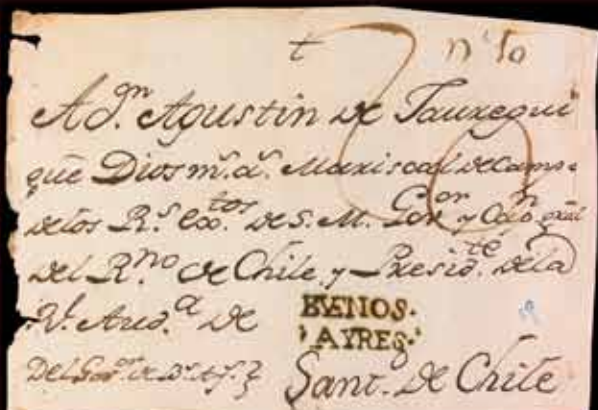 t nº 10
A dⁿ. Agustin de Jauregui
que Dios mˢ. aˢ. Mariscal de Camp.
delos Rˢ. Exᵗᵒˢ. de S. M. Gᵒʳ. y Capⁿ. gral
del Rⁿᵒ de Chile y Presidᵗᵉ. dela
Rˡ. Audᵃ de
BVENOS.
AYRES.
Del Govᵒʳ. de Bˢ. Aˢ.
Sant. de Chile